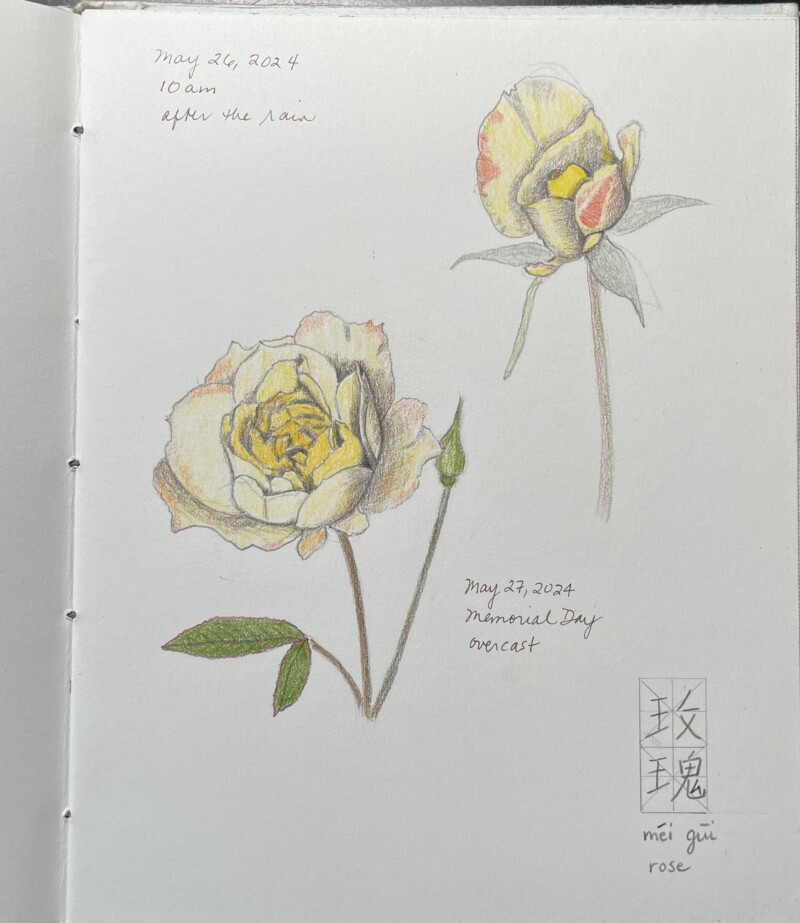 May 26, 2024
10 am
after the rain
May 27, 2024
Memorial Day
overcast
玫
瑰
méi gūi
rose